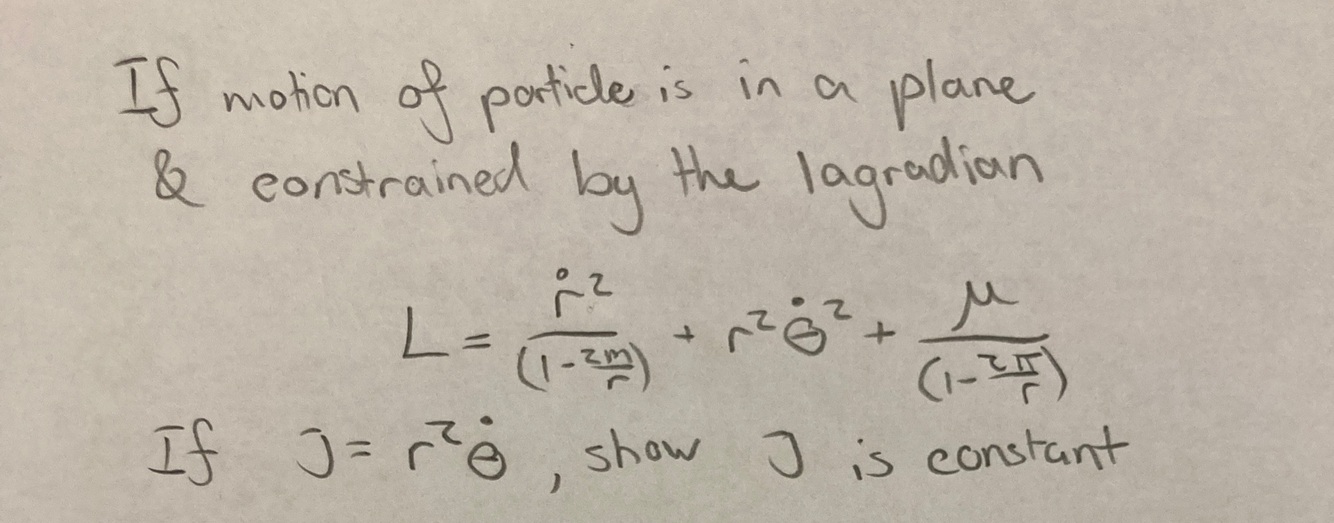 If motion of particle is in a plane
& constrained by the lagradian
L = ṙ²/(1-2m/r) + r²θ̇² + μ/(1-2π/r)
If J = r²θ̇, show J is constant